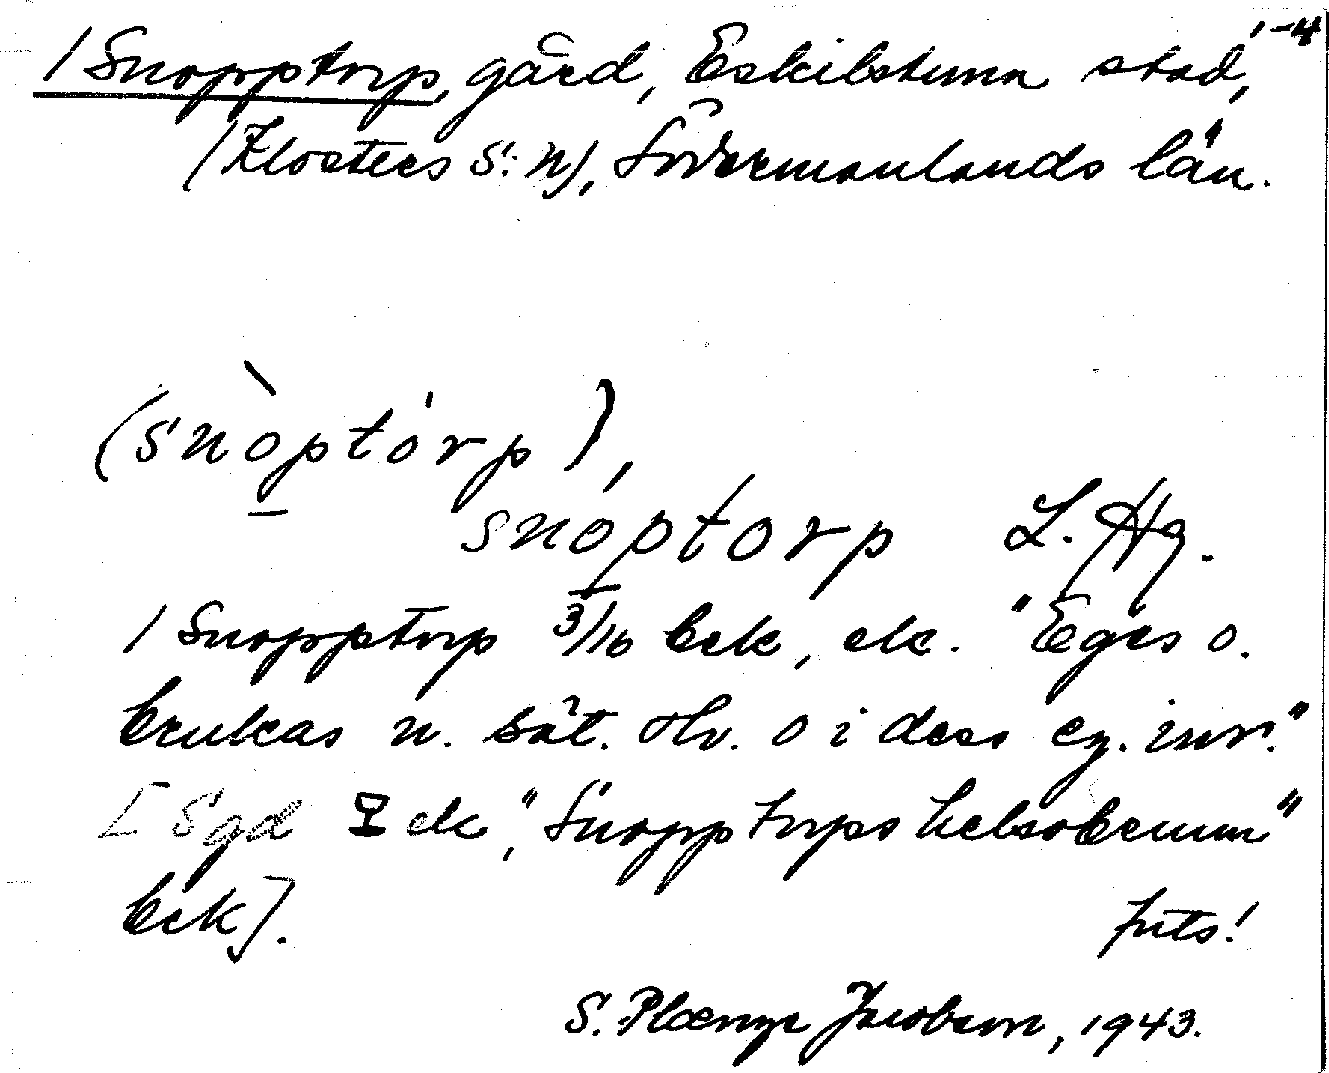 1-4
/ Snopptorp, gård, Eskilstuna stad,
(Klosters s:n), Södermanlands län.
(snòptórp),
snóptorp L. Hg.
/ Snopptorp 3/16 bek, ek. "Eges o.
brukas n. båt. o i dess eg. invr."
[Sgd ek, "Snopptorps helsobrunn"
bek]. forts!
S. Plænge Jacobson, 1943.